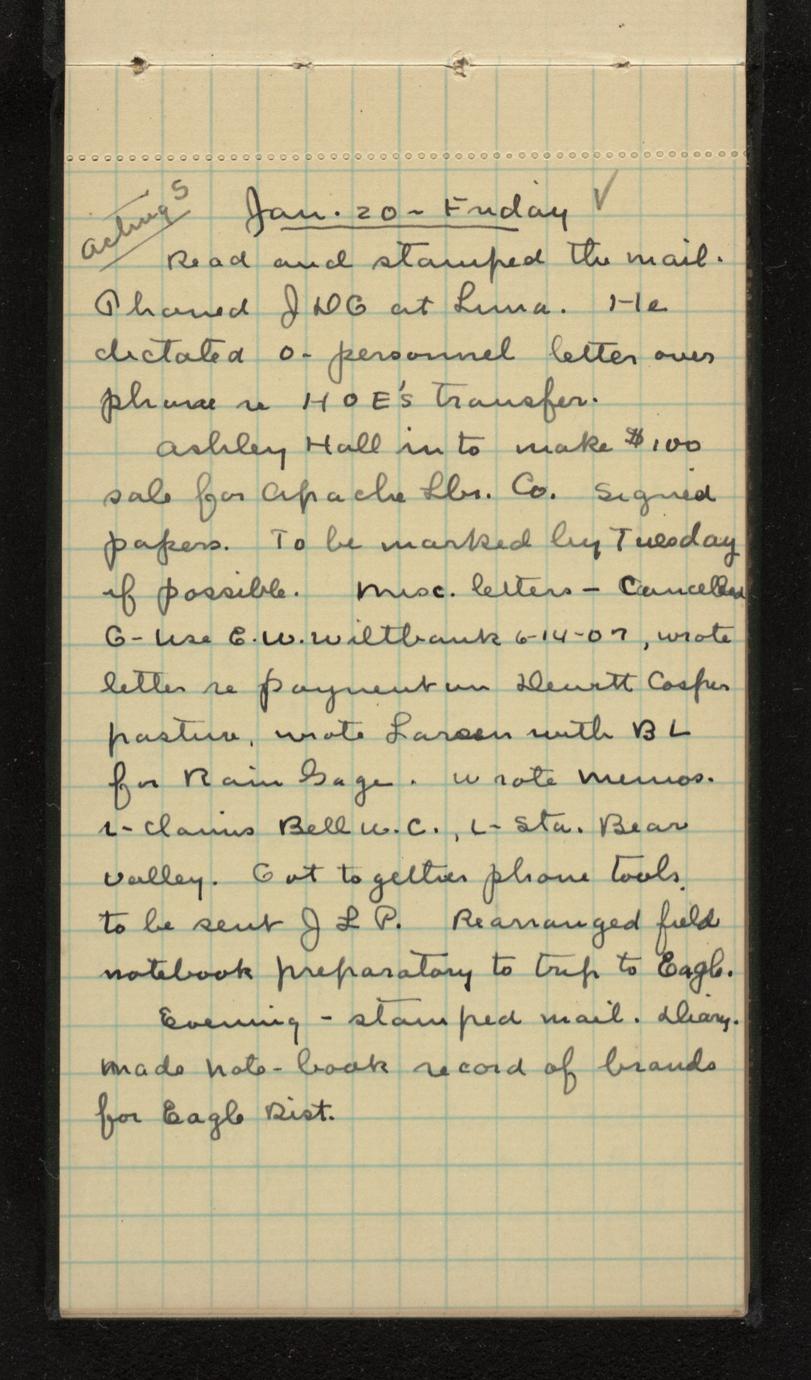 acting S
Jan. 20 - Friday ✓
Read and stamped the mail.
Phoned J D G at Luna. He
dictated O- personnel letter over
phone re H O E's transfer.
Ashley Hall in to make $100
sale for Apache Lbr. Co. Signed
papers. To be marked by Tuesday
if possible. Misc. letters - Cancelled
G- Use E.W. Wiltbank 6-14-07, wrote
letter re payment on Dewitt Cosper
pasture, wrote Larson with B L
for Rain Gage. Wrote memos.
L- Claims Bell W.C., L- Sta. Bear
Valley. Got together phone tools
to be sent J L P. Rearranged field
notebook preparatory to trip to Eagle.
Evening - stamped mail. Diary.
Made note-book record of brands
for Eagle Dist.